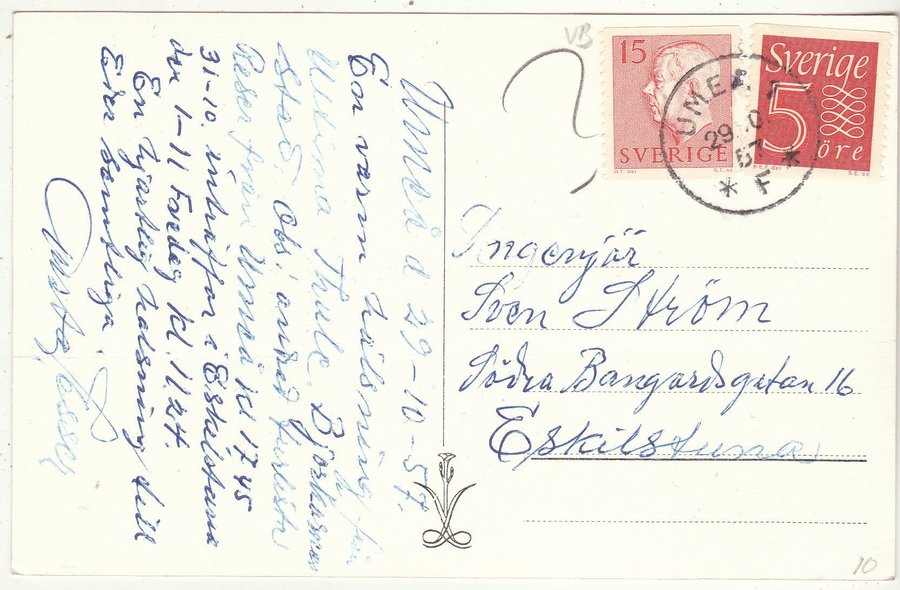 Umeå d 29-10-57.
En varm hälsning från
Ultima Thule. Björkarnas
Stad. Obs! andeg turist.
Reser från Umeå kl 17,45
31-10. inträffar i Eskilstuna
den 1-11 Fredag kl. 11,24.
En hjärtlig halsning till
Eder samtliga.
VB
15
SVERIGE
Sverige
5
öre
UMEÅ 1
29.10.
57
* F *
Ingenjör
Sven Ström
Södra Bangardsgatan 16
Eskilstuna
10